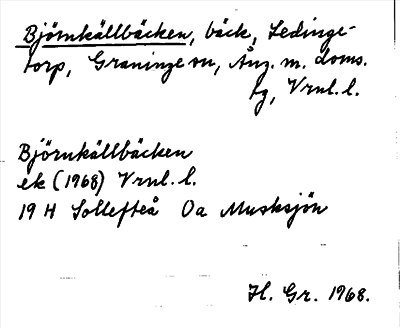 Björnkällbäcken, bäck, Ledinge-
torp, Graninge sn, Ång. m. doms.
tg, Vrnl. l.
Björnkällbäcken
ek (1968) Vrnl. l.
19 H Sollefteå Oa Musksjön
H. Gr. 1968.